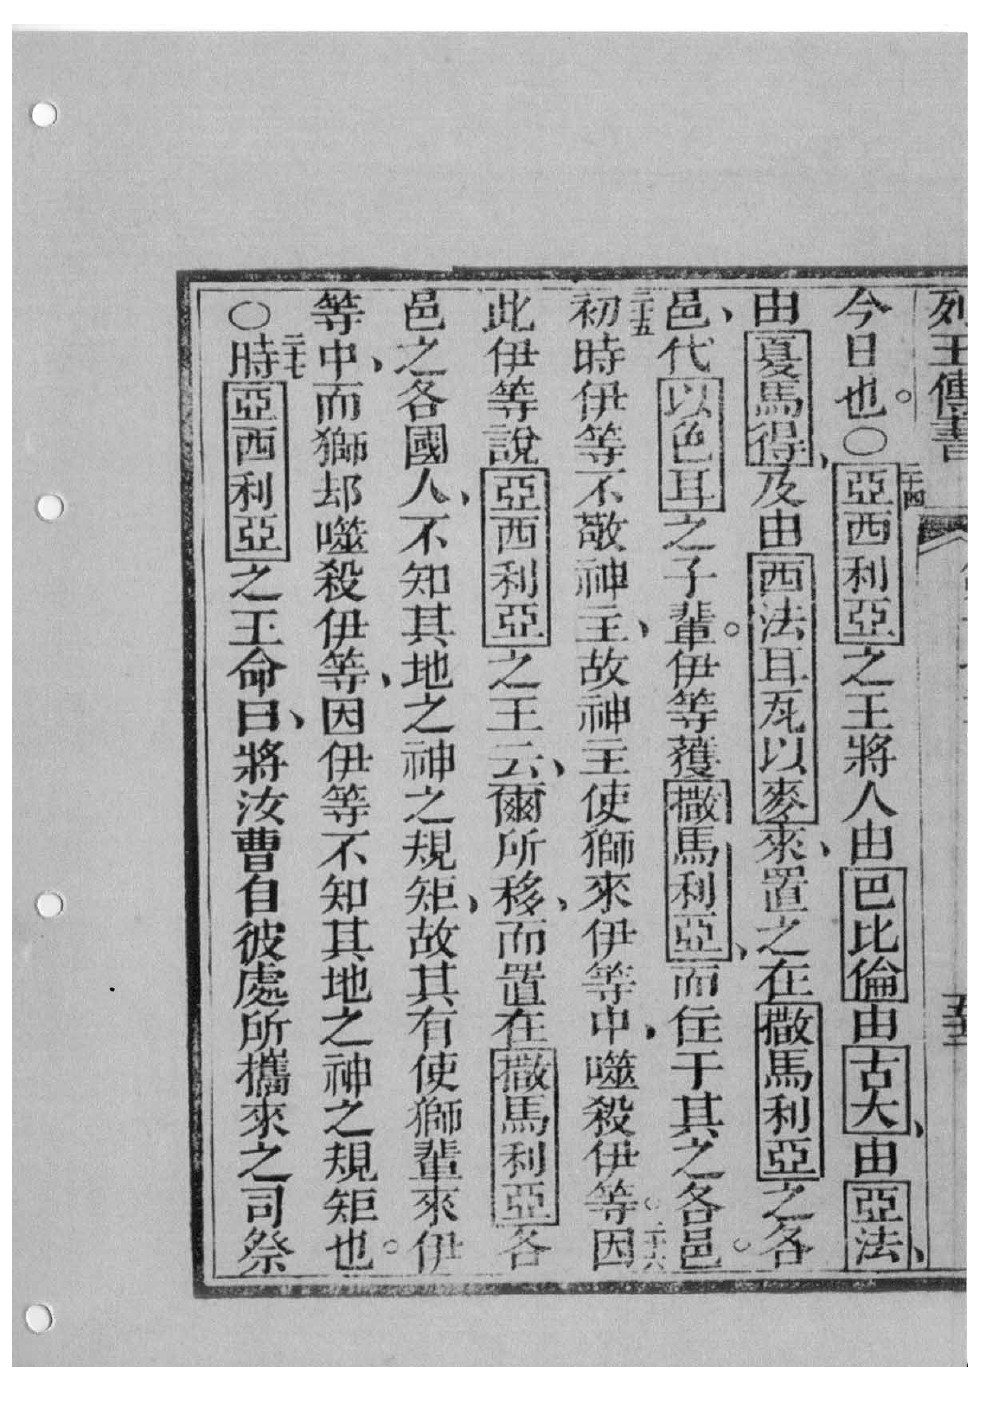 列王傳書
今日也。○二十四亞西利亞之王將人由巴比倫由古大、由亞法、
由夏馬得、及由西法耳瓦以麥來、置之在撒馬利亞之各
邑、代以色耳之子輩。伊等獲撒馬利亞、而住于其之各邑。
二十五初時伊等不敬神主、故神主使獅來伊等中、噬殺伊等。二十六因
此伊等說亞西利亞之王云、爾所移、而置在撒馬利亞各
邑之各國人、不知其地之神之規矩、故其有使獅輩來伊
等中、而獅却噬殺伊等、因伊等不知其地之神之規矩也。
○二十七時亞西利亞之王命曰、將汝曹自彼處所攜來之司祭